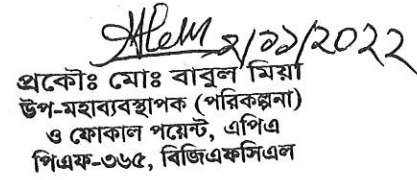 ২/১১/2022
প্রকৌঃ মোঃ বাবুল মিয়া
উপ-মহাব্যবস্থাপক (পরিকল্পনা)
ও ফোকাল পয়েন্ট, এপিএ
পিএফ-৩৬৫, বিজিএফসিএল